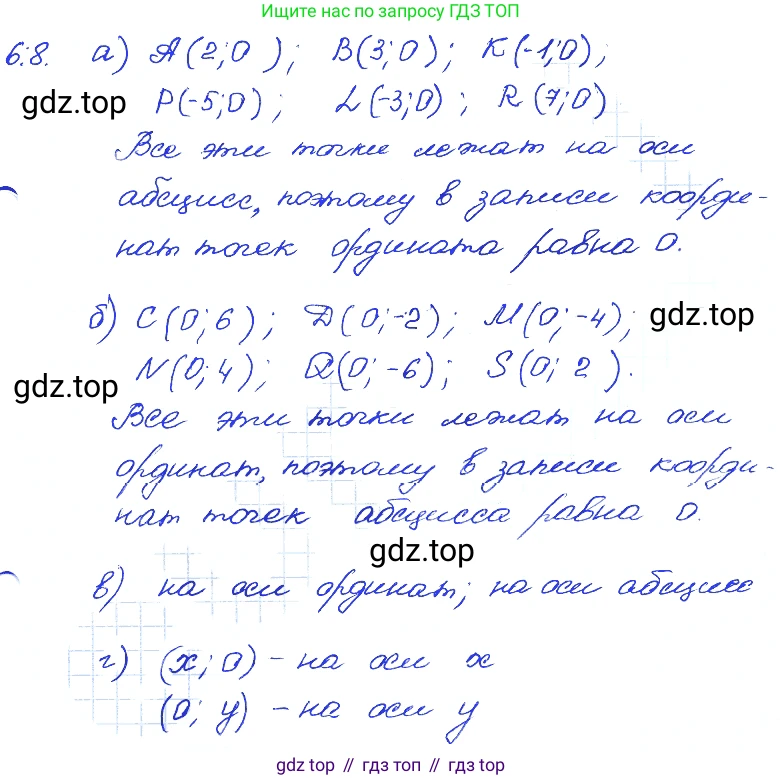 Ищите нас по запросу ГДЗ ТОП
6.8. а) A(2;0 ); B(3;0); K(-1;0);
gdz.top P(-5;0); L(-3;0); R(7;0)
Все эти точки лежат на оси
абсцисс, поэтому в записи коорди-
нат точек ордината равна 0.
б) C(0;6); D(0;-2); M(0;-4); gdz.top
gdz.top N(0;4); Q(0;-6); S(0; 2).
Все эти точки лежат на оси
ординат, поэтому в записи коорди-
нат точек абсцисса равна 0.
gdz.top
в) на оси ординат; на оси абсцисс
г) (x; 0) - на оси x
(0; y) - на оси y
gdz.top // гдз топ // gdz.top